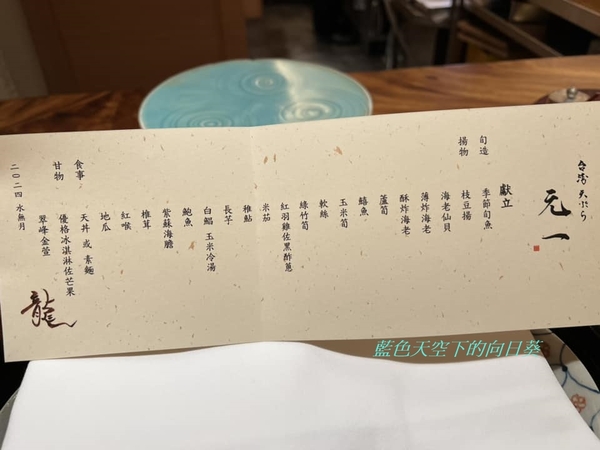 台湾天ぷら
元一
獻立
旬造
季節旬魚
揚物
枝豆揚
海老仙貝
薄炸海老
酥炸海老
蘆筍
鱚魚
玉米筍
軟絲
綠竹筍
紅羽雞佐黑酢蔥
米茄
稚鮎
長芋
白鯧 玉米冷湯
鮑魚
紫蘇海膽
椎茸
紅喉
地瓜
食事
天丼 或 素麵
甘物
優格冰淇淋佐芒果
翠峰金萱
二〇二四 水無月
龍
藍色天空下的向日葵